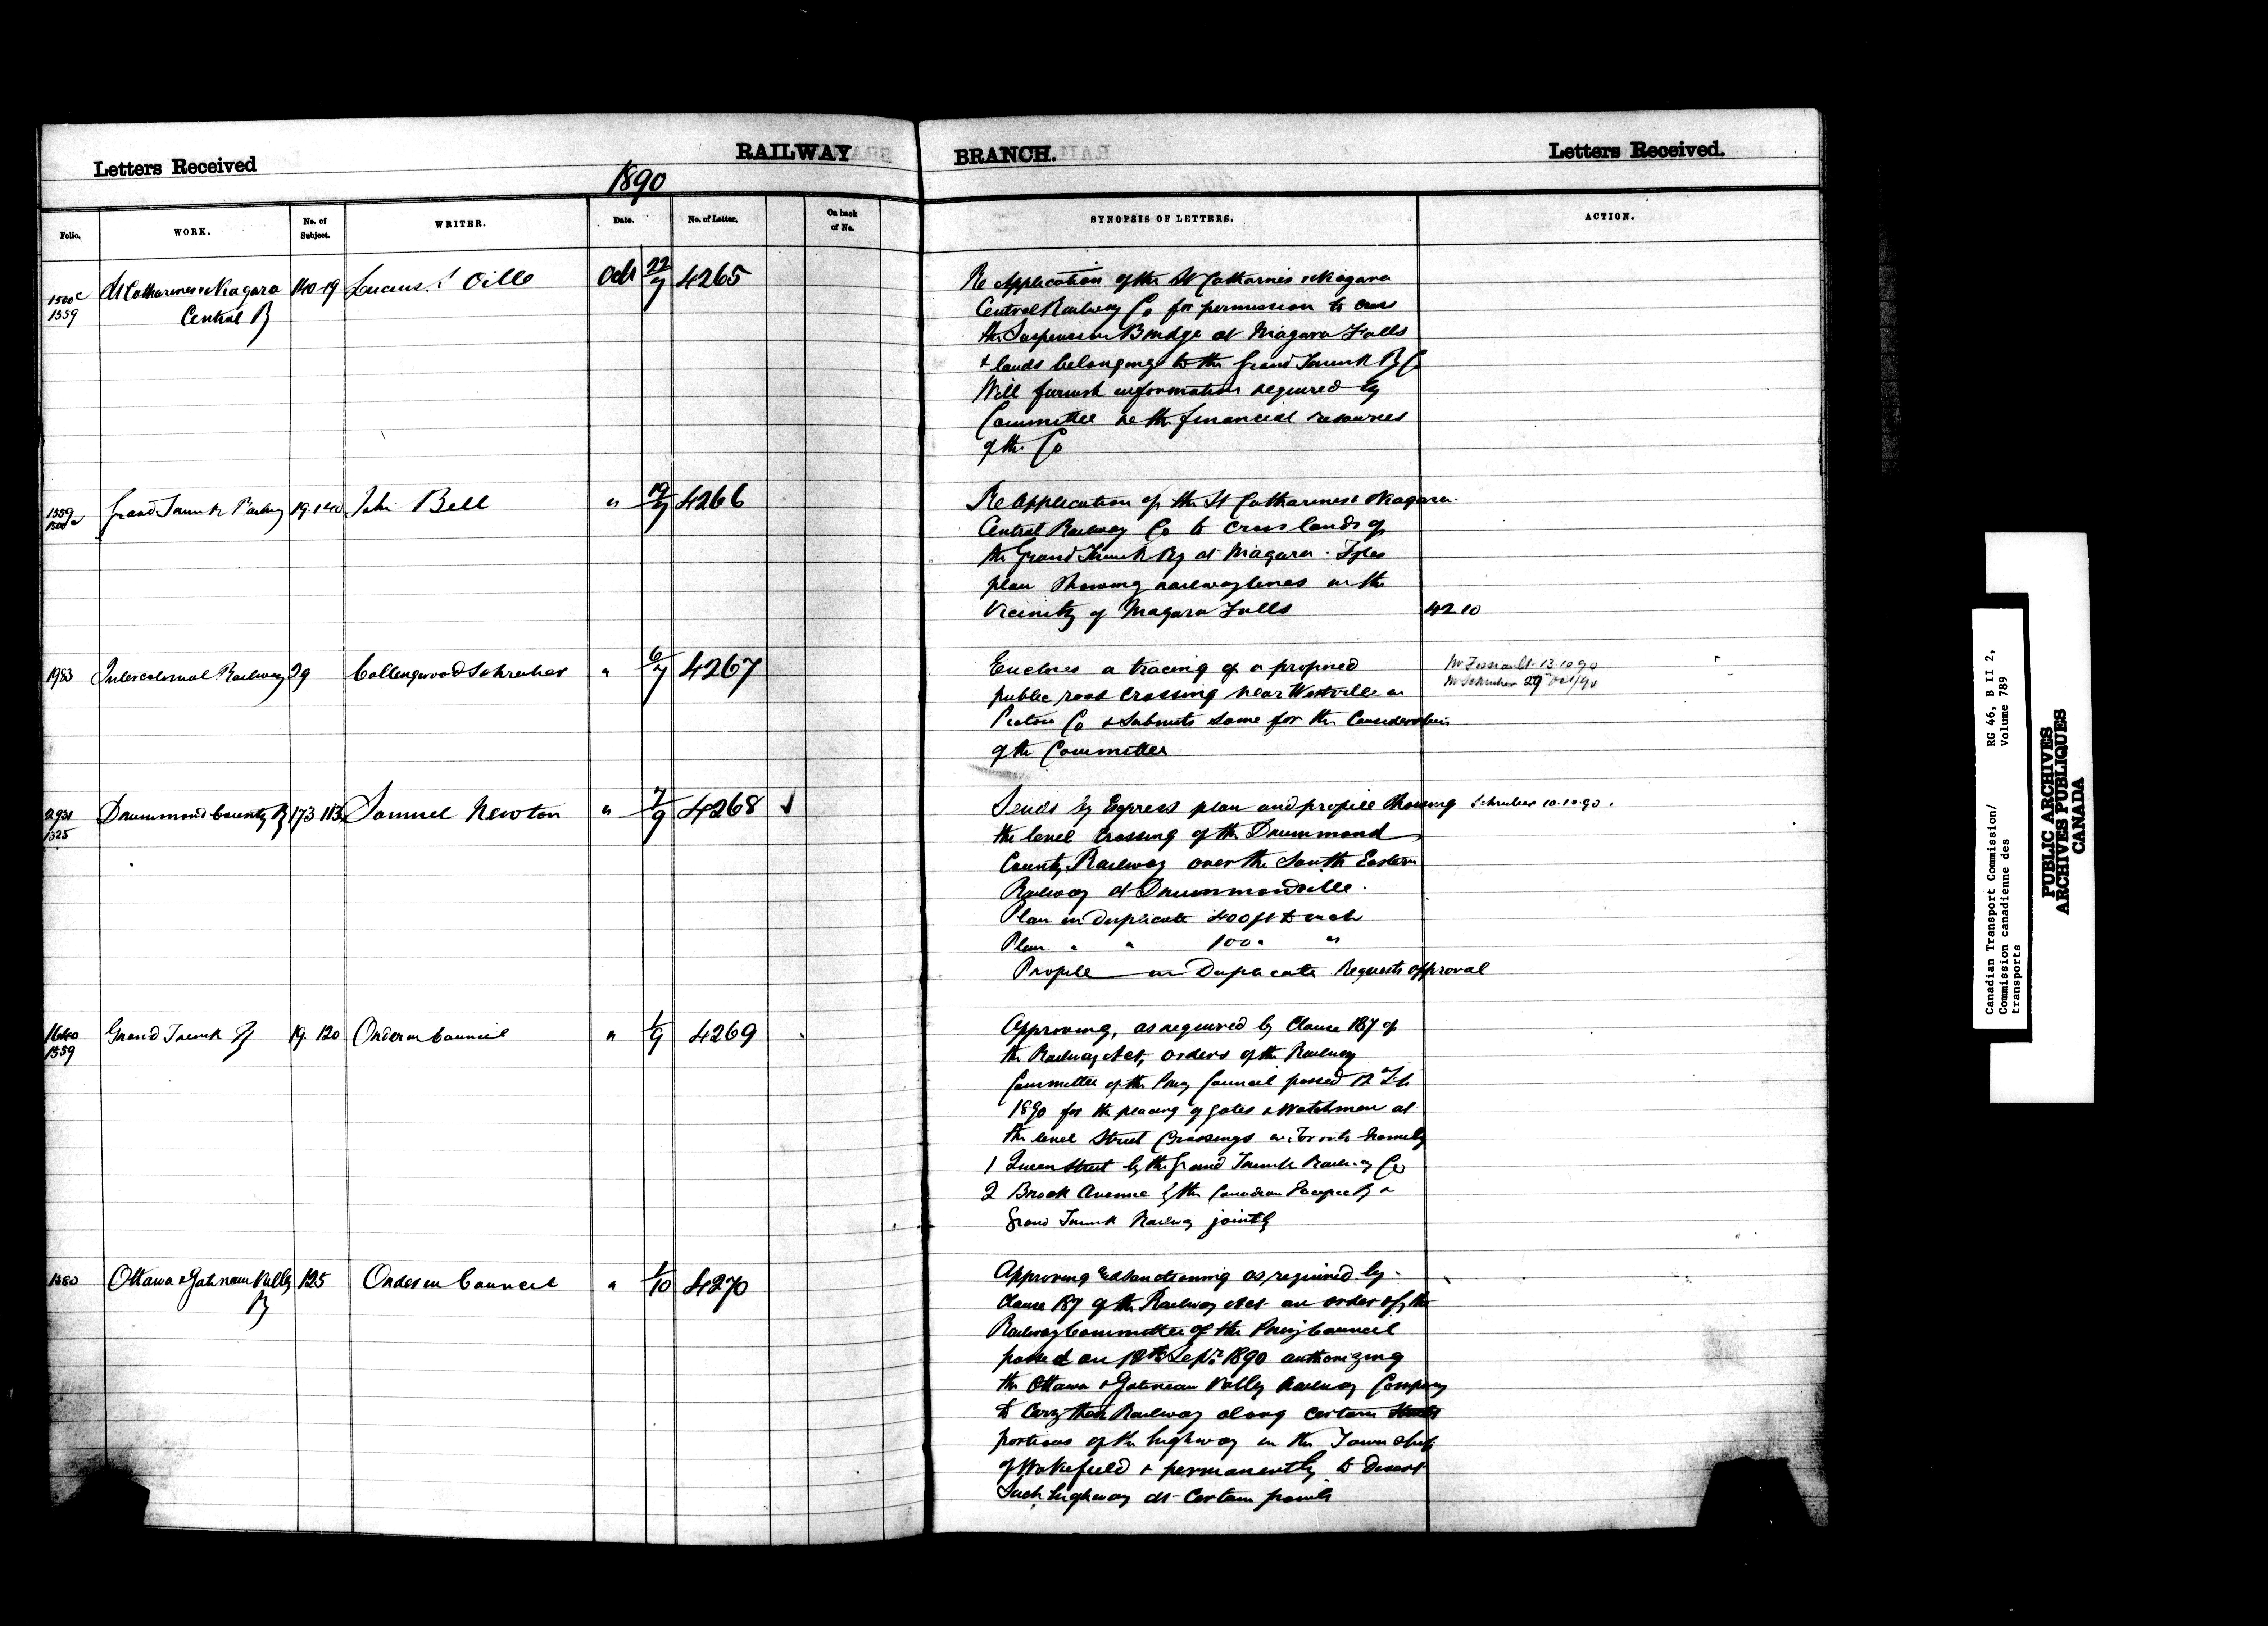 Letters Received
RAILWAY
BRANCH.
Letters Received.
1890
Folio.
WORK.
No. of Subject.
WRITER.
Date.
No. of Letter.
On back of No.
SYNOPSIS OF LETTERS.
ACTION.
1500c
1359
St Catharines & Niagara
Central Ry
140-19
Lucius S Oille
Oct 22/7
4265
Re Application of the St Catharines & Niagara
Central Railway Co for permission to cross
the Suspension Bridge at Niagara Falls
& lands belonging to the Grand Trunk Ry Co
Will furnish information required by
Committee re the financial resources
of the Co
1359
1500c
Grand Trunk Railway
19.140
John Bell
" 19/7
4266
Re Application of the St Catharines & Niagara
Central Railway Co to cross lands of
the Grand Trunk Ry at Niagara. Fyles
plan Showing railway lines in the
Vicinity of Niagara Falls
4210
1983
Intercolonial Railway
29
Collingwood Schreiber
" 6/7
4267
Encloses a tracing of a proposed
public road crossing near Westville in
Pictou Co & Submits same for the Consideration
of the Committee
13.10.90
Mr Schreiber 29 Oct/90
2931
1325
Drummond County Ry
173 113
Samuel Newton
" 7/9
4268
Sends by Express plan and profile Showing
the level crossing of the Drummond
County Railway over the South Eastern
Railway at Drummondville.
Plan in Duplicate 400 ft to inch
Plan " " 100 " "
Profile in Duplicate Requests approval
Schreiber 10.10.90.
1640
1359
Grand Trunk Ry
19. 120
Order in Council
" 1/9
4269
Approving, as required by Clause 187 of
the Railway Act, orders of the Railway
Committee of the Privy Council passed 12
1890 for the placing of gates & Watchmen at
the level Street Crossings in Toronto namely
1 Queen Street by the Grand Trunk Railway Co
2 Brock Avenue by the Canadian Pacific Ry &
Grand Trunk Railway jointly
1380
Ottawa & Gatineau Valley
Ry
125
Order in Council
" 1/10
4270
Approving and Sanctioning as required by
Clause 187 of the Railway Act an order of the
Railway Committee of the Privy Council
passed on 18th Sept 1890 authorizing
the Ottawa & Gatineau Valley Railway Company
to Carry their Railway along certain
portions of the highway in the Township
of Wakefield & permanently to Divert
Such highway at Certain points
Canadian Transport Commission/
Commission canadienne des
transports
RG 46, B II 2,
Volume 789
PUBLIC ARCHIVES
ARCHIVES PUBLIQUES
CANADA